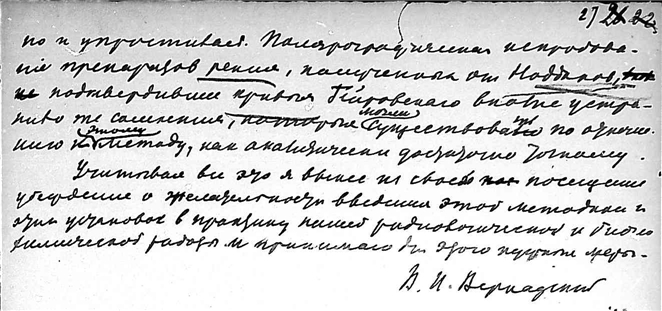 27
но и упрощивает. Полярографическая исследова-
ние препаратов рения, полученных от Ноддаков,
подтвердившие кривые Гейровского вполне устра-
нило те сомнения, которые могли существовать по отноше-
нию к этому методу, как аналитически достаточно точному.
Учитывая все это я вынес из своего посещения
убеждение о желательности введения этой методики и
этих установок в практику нашей радиологической и биогео-
химической работы и принимаю для этого нужные меры.
В. И. Вернадский